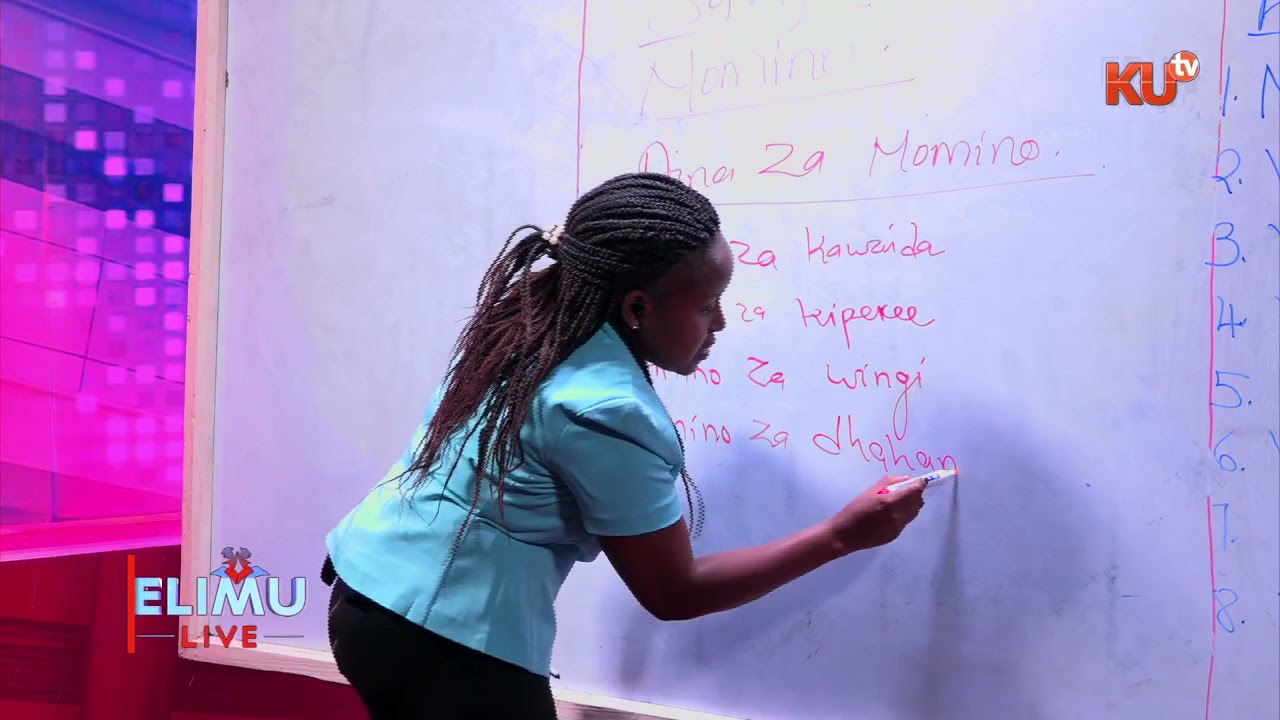 Nomino
Aina za Nomino.
za kawaida
za kipekee
za wingi
nino za dhahan
1.
2.
3.
4.
5.
6.
7.
8.
KU tv
ELIMU
LIVE